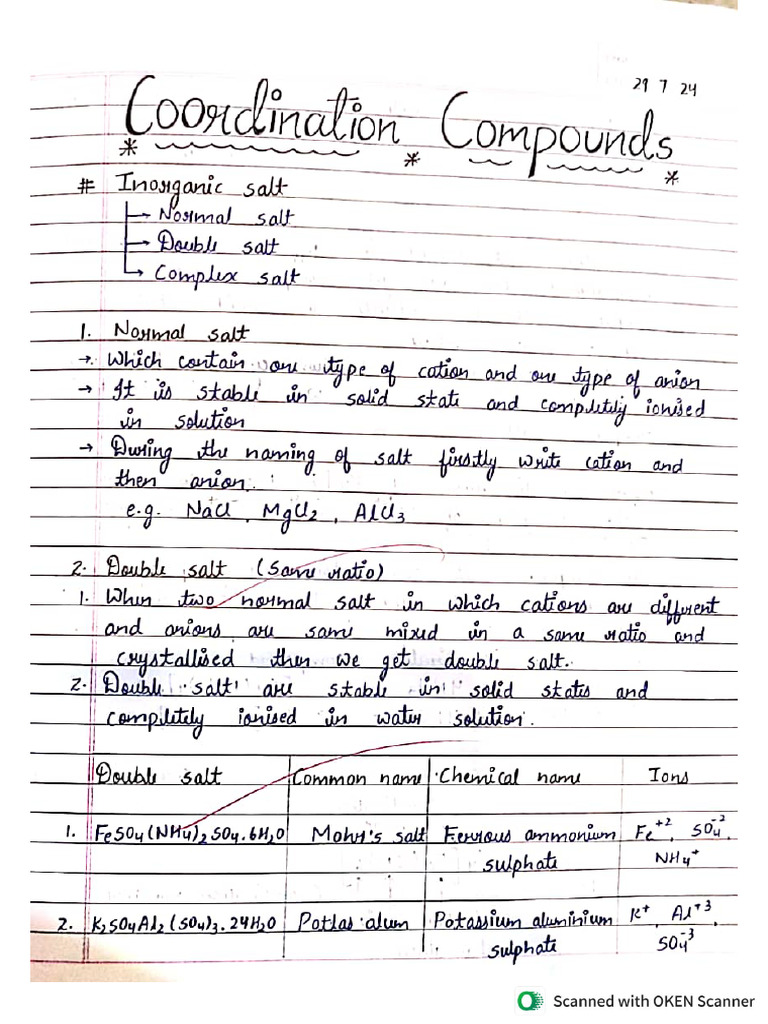 29 7 24
Coordination Compounds
# Inorganic salt
→ Normal salt
→ Double salt
→ Complex salt
1. Normal salt
→ Which contain one type of cation and one type of anion
→ It is stable in solid state and completely ionised
in solution
→ During the naming of salt firstly write cation and
then anion.
e.g. NaCl, MgCl₂, AlCl₃
2. Double salt (Same ratio)
1. When two normal salt in which cations are different
and anions are same mixed in a same ratio and
crystallised then we get double salt.
2. Double salt are stable in solid states and
completely ionised in water solution.
Double salt Common name Chemical name Ions
1. FeSO₄(NH₄)₂SO₄.6H₂O Mohr's salt Ferrous ammonium Fe⁺², SO₄⁻²,
sulphate NH₄⁺
2. K₂SO₄Al₂(SO₄)₃.24H₂O Potlas alum Potassium aluminium K⁺, Al⁺³,
sulphate SO₄⁻³
Scanned with OKEN Scanner